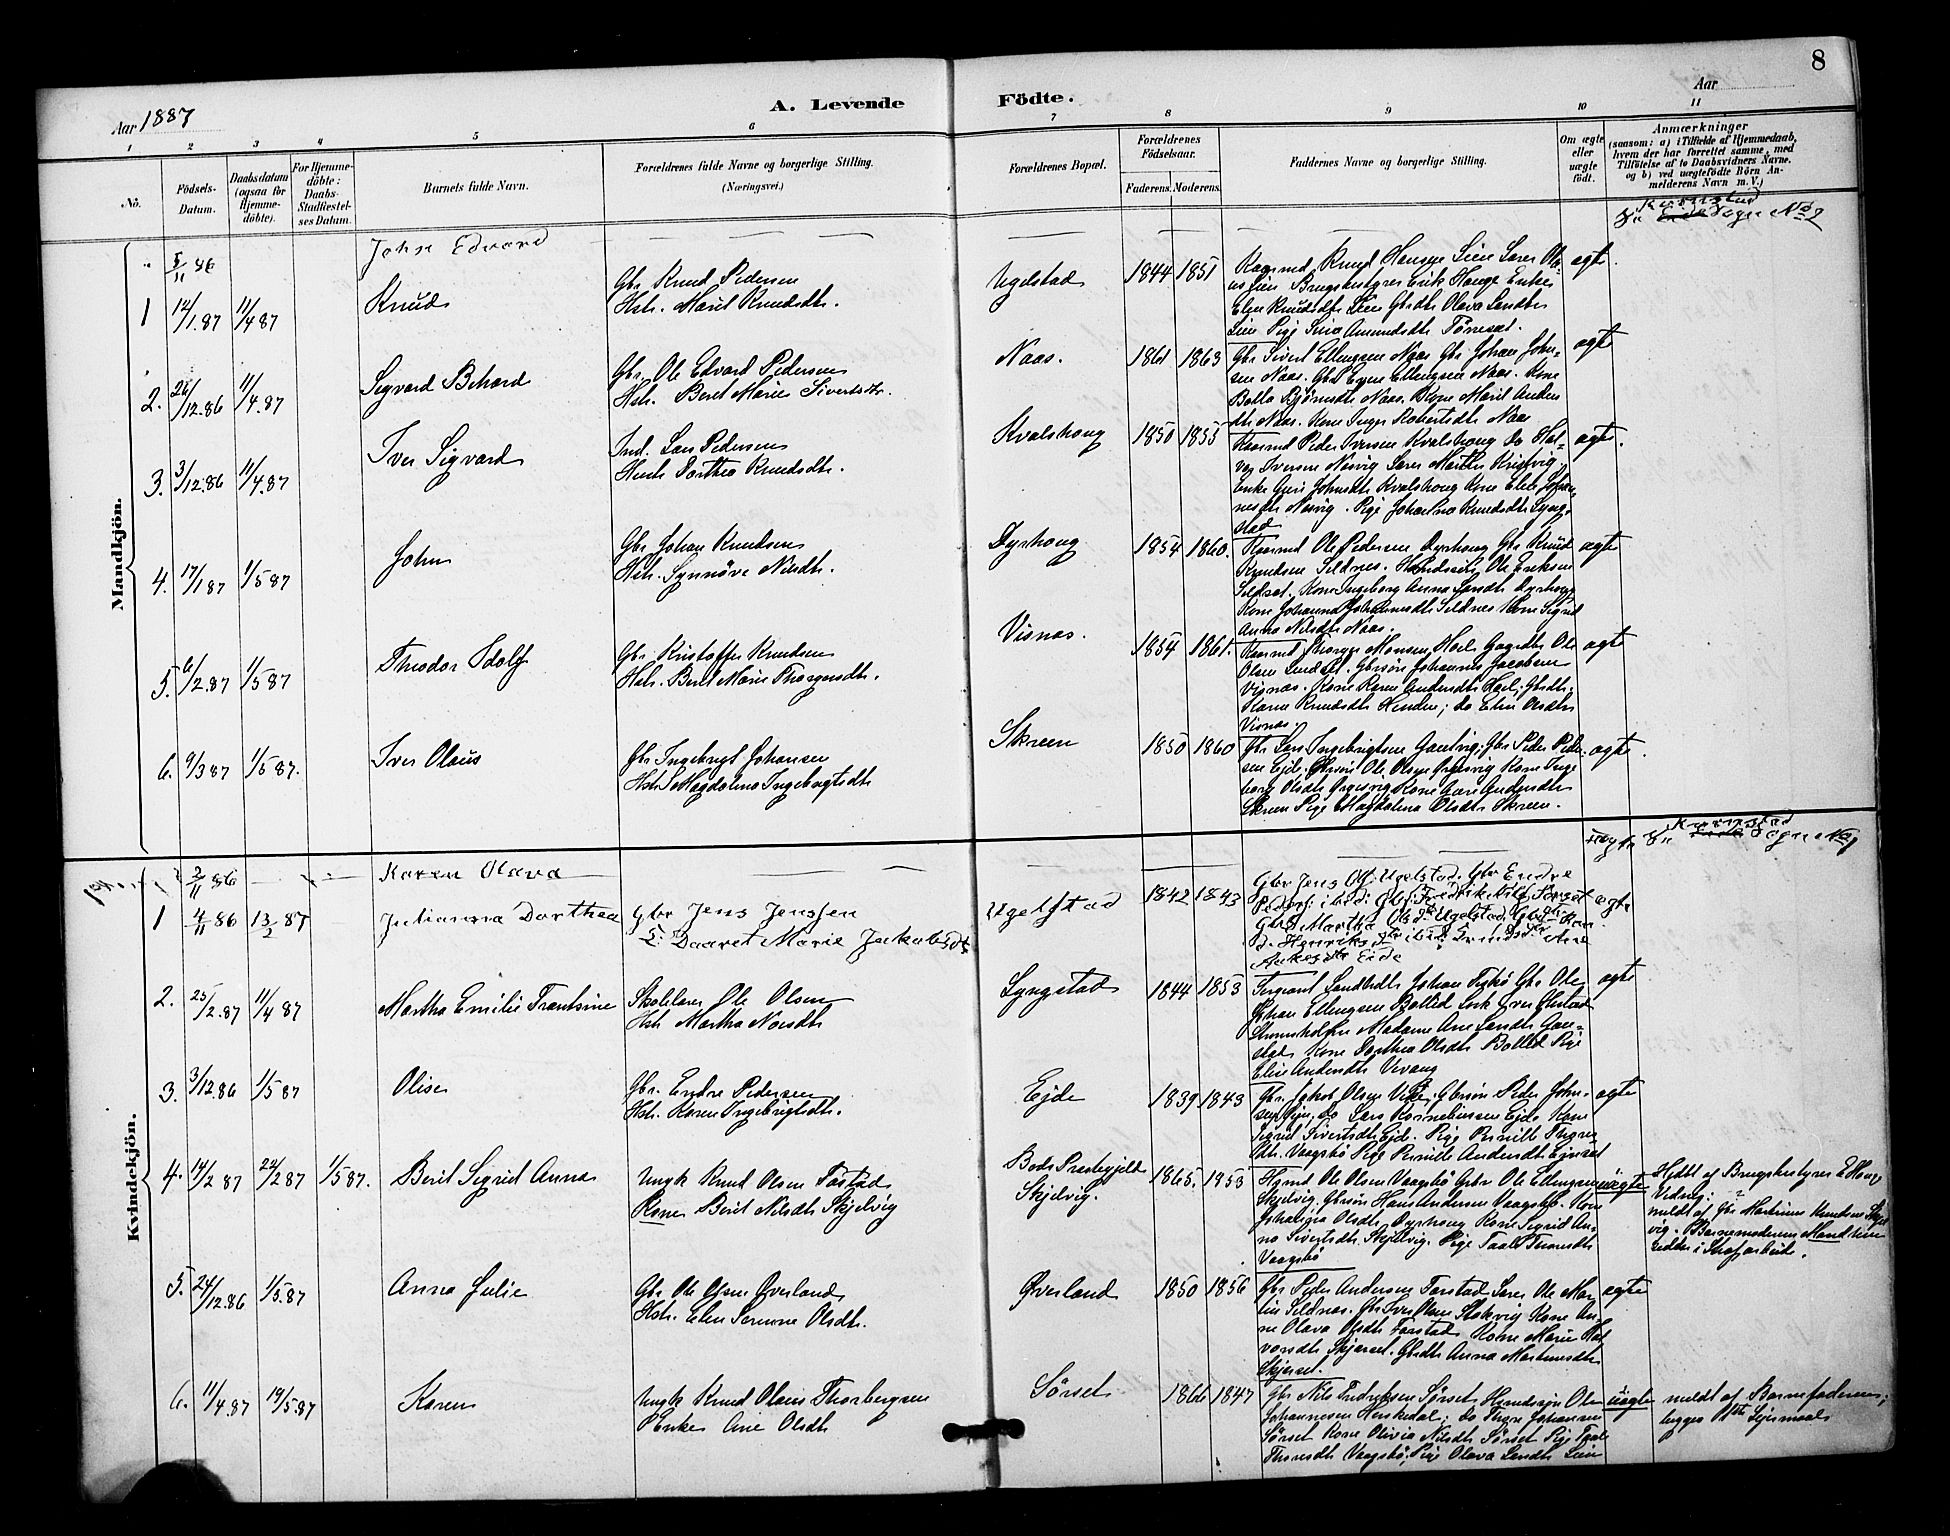 8
Aar 1887
A. Levende Födte.
Aar
1 2 3 4 5 6 7 8 9 10 11
Nò.
Födsels-Datum.
Daabsdatum (ogsaa for Hjemme-döbte).
For Hjemme-döbte: Daabs-Stadfæstel-ses Datum.
Barnets fulde Navn.
Forældrenes fulde Navne og borgerlige Stilling.
(Næringsvei.)
Forældrenes Bopæl.
Forældrenes Födselsaar.
Faderens. Moderens.
Faddernes Navne og borgerlige Stilling.
Om ægte eller uægte födt.
Anmærkninger
(saasom: a) i Tilfælde af Hjemmedaab,
hvem der har forrettet samme, med
Tilföielse af to Daabsvidners Navne.
og b) ved uægtefödte Börn An-
melderens Navn m. V.)
Mandkjön.
" 5/11 86 Johan Edvard
Se Kvernstad Eide Sogn No 2
1 12/1.87 11/4 87 Knud
Gbr Knud Pedersen
Hstr. Marit Knudsdtr.
Ugelstad 1844 1851
Elen Knudsdtr Lien Gbrdtr Olava Larsdtr
Lien Pige Sina Amundsdtr Tönsæt.
ægte
2. 26/12.86 11/4.87 Sigvard Behard
Gbr. Ole Edvard Pedersen
Hstr. Beret Marie Sivertsdtr.
Naas. 1861 1863
Gbr Sivert Ellengsen Naas Gbr Johan John-
sen Naas. Gbrs Egen Ellengsen Naas. Kone
Bolla Bjørnsdtr Naas. Kone Marit Anders
dtr Naas. Kone Inger Robertsdtr Naas
ægte
3. 3/12.86 11/4.87 Iver Sigvard
Ind. Lars Pedersen
Hustr Dorthea Knudsdtr.
Kvalshoug 1850 1855
Kaarmd Peder Iversen Kvalshoug do Hal-
vor Iversen Nasvig Lærer Martin Kristvig
Enke Guri Johnsdtr Kvalshoug Kone Elen Johan
nesdtr Nasvig. Pige Johanna Knudsdtr Lyng-
stad
ægte.
4. 17/1 87 1/5 87 John
Gbr Johan Knudsen
Hstr. Synnöve Nilsdtr.
Dyrhoug 1854 1860.
Kaarmd Ole Pedersen Dyrhoug Gbr Knud
Knudsen Seldnes. Ole Eriksen
Seldset. Kone Ingeborg Anna Larsdtr Dyrhoug
Kone Johanna Johannesdtr Seldnes Kone Sigrid
Anna Nilsdtr Naas.
ægte
5. 6/2.87 1/5 87 Theodor Idolf
Gbr Kristoffer Knudsen
Hstr. Berit Marie Thorgersdtr.
Visnas. 1854 1861.
Olsen Lindset. Gbrsön Johannes Jacobsen
Visnas. Kone Karen Andersdtr Hoel; Gbrdtr.
Karen Knudsdtr Henden; do Elen Olsdtr
Visnas.
ægte
6. 9/3 87 1/5 87. Iver Olaus
Gbr Ingebrigt Johansen
Hstr Magdalena Ingebrigtsdtr
Skreen 1850 1860
Gbr Lars Ingebrigtsen Gautvig; Gbr Peder Peder-
sen Ejde. Gbrsön Ole Olsen Gregsvig Kone Inge
borg Olsdtr Gregsvig Kone Guri Andersdtr
Skreen Pige Magdalena Olsdtr Skreen.
ægte.
Kvindekjön.
2/11 86 Karen Olava
uægte Se Kvernstad Eide Sogn No 1
1 4/11 86 13/2 87 Julianna Dorthea
Gbr Jens Jenssen
H: Daaret Marie Jakobsdtr
Ugelstad 1842 1843
Gbr Jens Olsen Ugelstad. Gbr Endre
Gbrd Martha Olsdtr Ugelstad,
Eide
ægte
2. 25/2.87 11/4 87 Martha Emilie Frantsine
Skolelærer Ole Olsen
Hstr Martha Noisdtr
Lyngstad 1844 1853
Sergeant Gbr Ole
Johan Ellengsen Bollid
Strömsholm Madame Ane Larsdtr Gau-
stad Kone Dorthea Olsdtr Bollid Pige
Eline Andersdtr Vevang
ægte
3. 3/12.86 1/5 87 Olise
Gbr. Endre Pedersen
Hstr. Karen Ingebrigtsdtr.
Ejde 1839 1843
Gbr. Jakob Olsen Gbrsön Peder John-
sen do Lars Korneliussen Ejde Kone
Sigrid Sivertsdtr Ejde. Pige Pernille Thores-
dtr. Vaagsbö Pige Pernille Andersdtr
ægte
4. 14/2 87 24/2 87 1/5 87. Berit Sigrid Anna
Ungk Knud Olsen Farstad
Kone Berit Nilsdtr Skjelvig
Bods Præstegjeld
Skjelvig. 1865. 1853
Hgmd Ole Olsen Vaagsbö Gbr Ole Ellengsen
Skjelvig Gbrsön Hans Andersen Vaagsbö. Kone
Olsdtr Dyrhoug Kone Sigrid An-
na Sivertsdtr Skjelvig. Pige Thoresdtr
Vaagsbö
uægte
Hjdbt af Brugsbestyrer E Hauge
Vidner: ?
meldt af Gbr Martinus Knudsen Skjel
vig. Barnemoderens Mand hen
sidder i Strafarbeide.
5. 24/12.86 1/5.87 Anna Julie
Gbr Ole Olsen Øverland
Hstr. Elen Serianne Olsdtr.
Øverland 1850 1856
Gbr Peder Andersen Farstad Lærer Ole Mar
tin Seldnas. Gbr Iver Olsen Stokvig Kone An-
ne Olava Olsdtr Farstad Kone Marie Hal
vorsdtr Skjerset. Gbrdtr Anna Martinusdtr
Skjerset.
ægte
6. 11/4.87 19/5.87 Karen
Ungk Knud Olaus Thorbergsen
Enke Ane Olsdtr
Sörset 1866 1847
Gbr Nils Fredriksen Sörset Hgmdssön Ole
Johannesen Herskedal; do Thore Johansen
Sörset Kone Olivia Nilsdtr Sörset Pige
Thoresdtr Vaagsbö; Pige Olava Larsdtr Lien
uægte
meldt af Barnefaderen;
begges 1ste Leiermaal